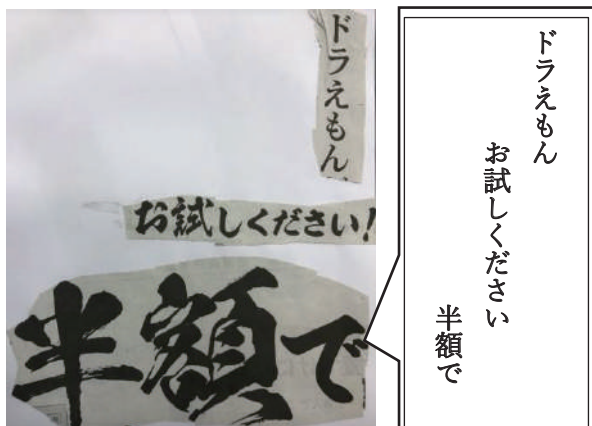 ドラえもん、
お試しください!
半額で
ドラえもん
お試しください
半額で